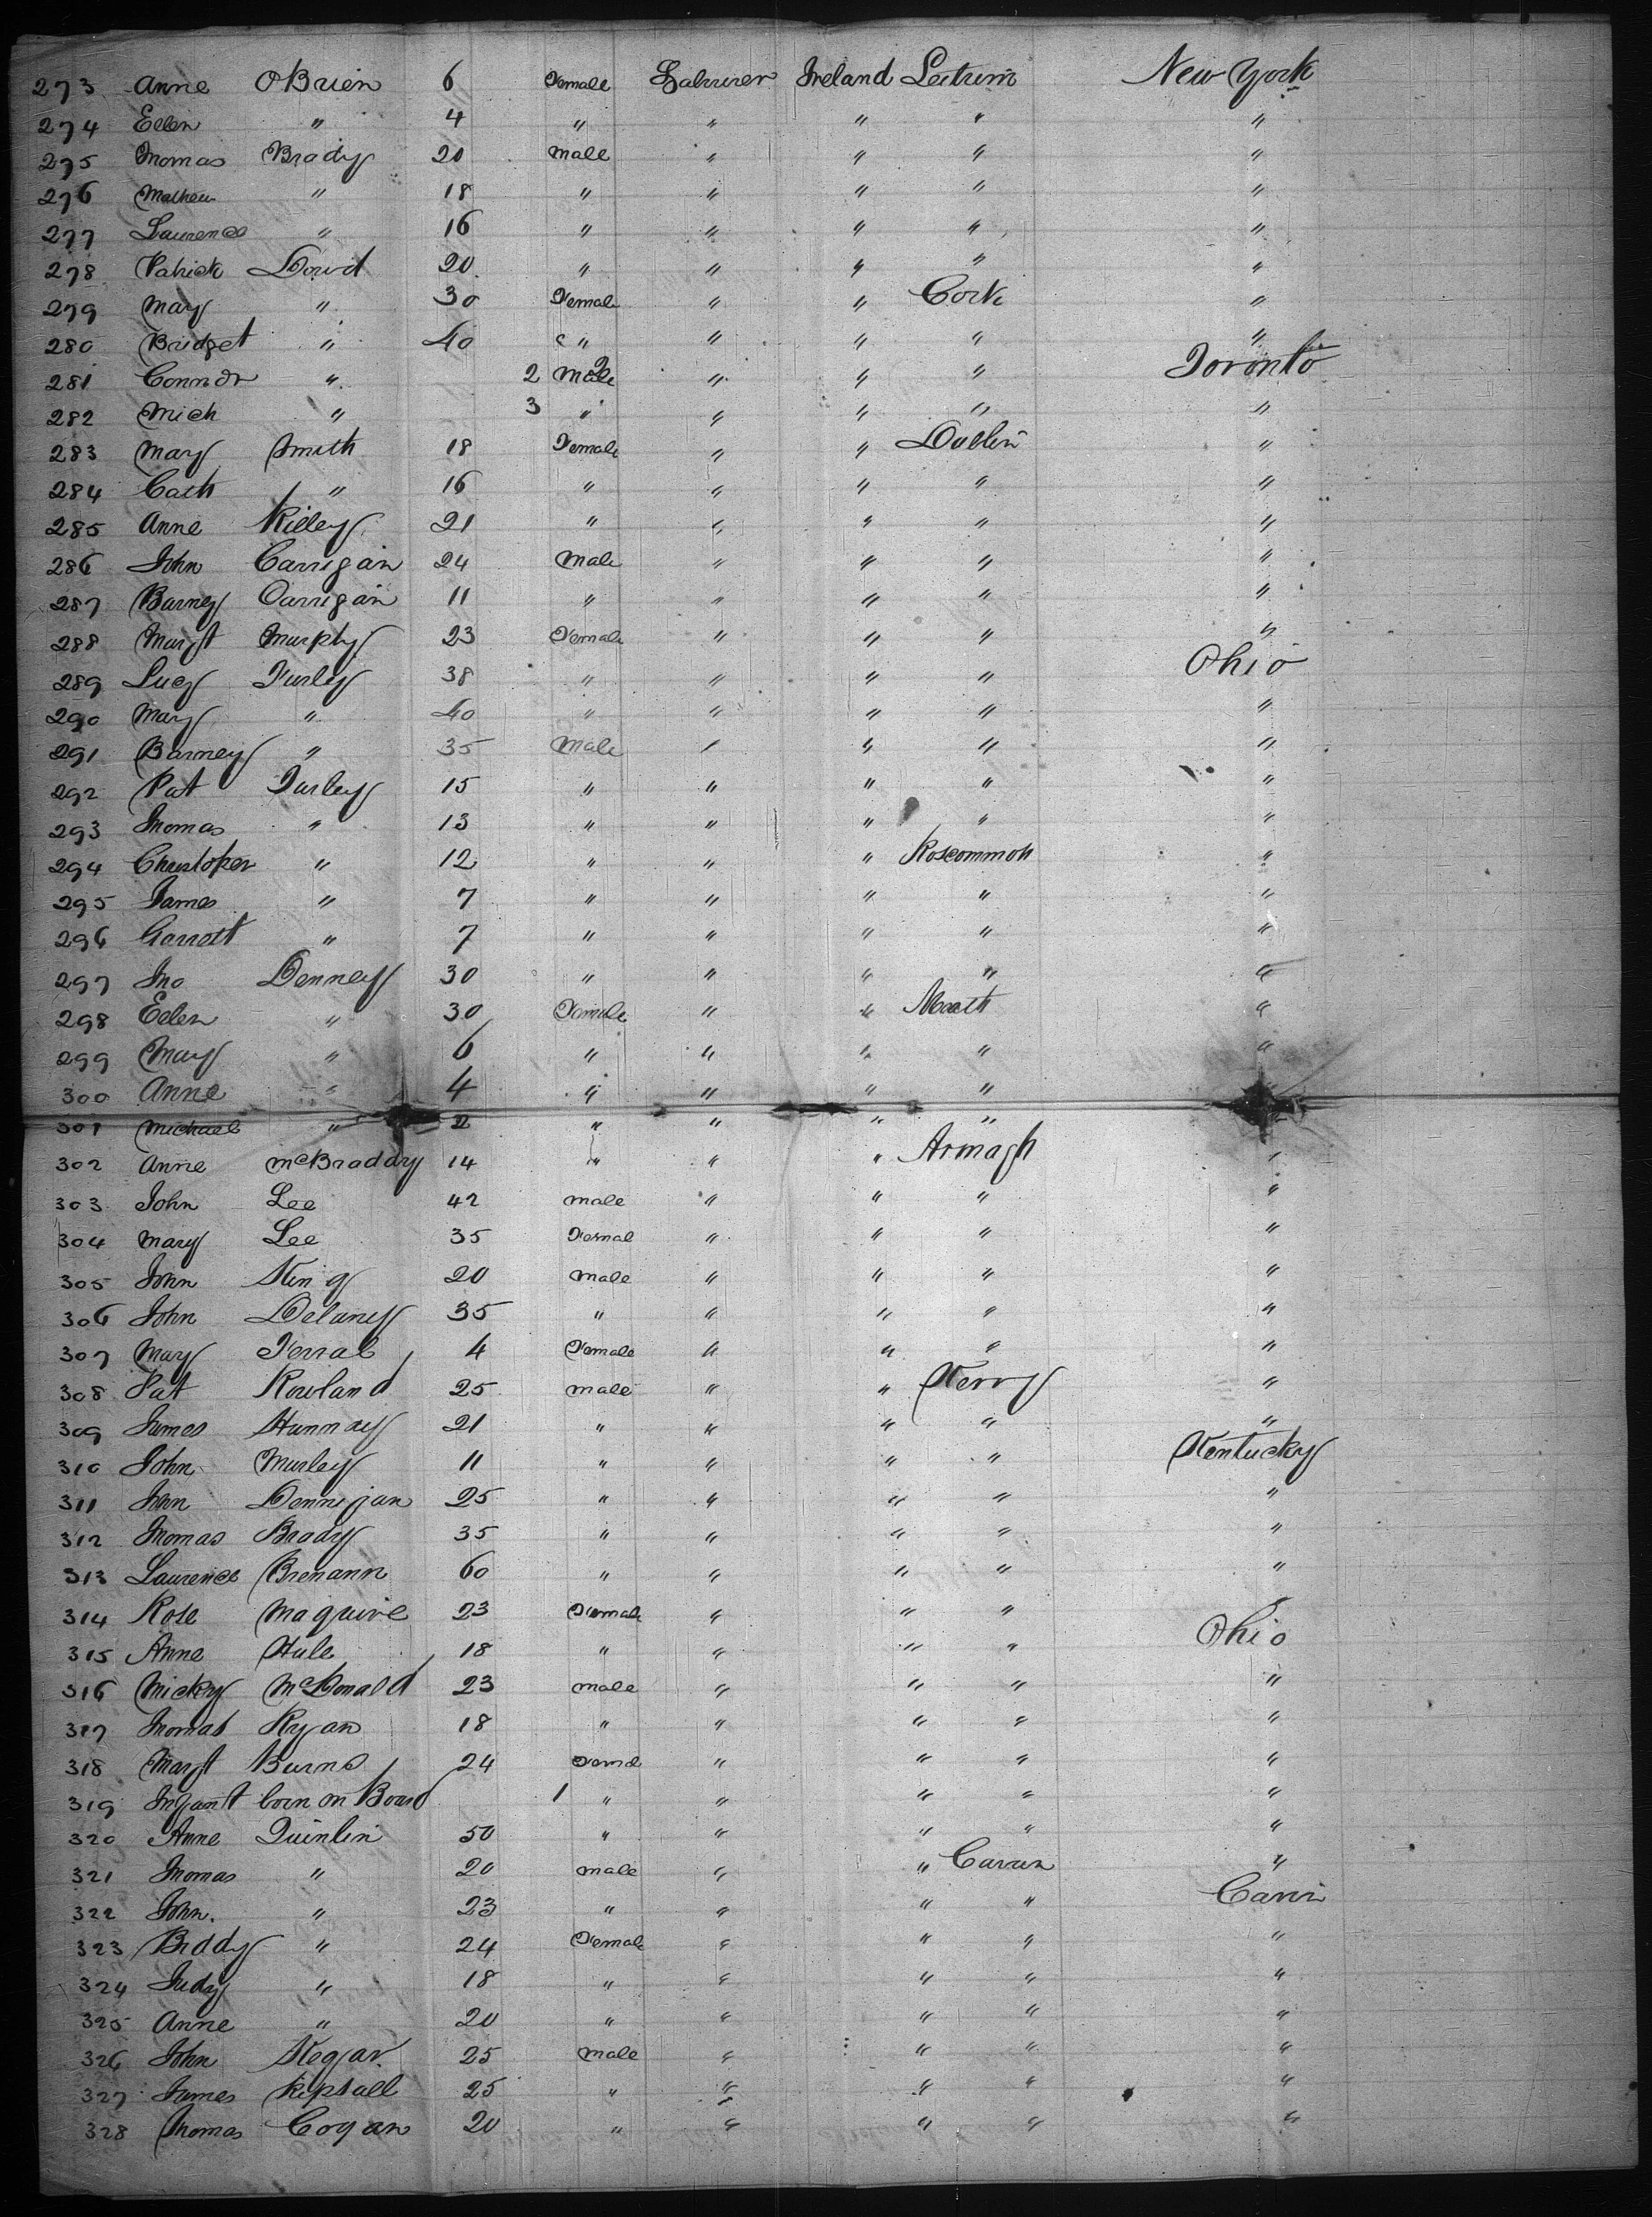 273 Anne OBrien 6 Female Labourer Ireland Leitrim New York
274 Ellen " 4 " " " " "
275 Thomas Brady 20 Male " " " "
276 Mathew " 18 " " " " "
277 Laurence " 16 " " " " "
278 Patrick Dowd 20 " " " " "
279 Mary " 30 Female " " Cork "
280 Bridget " 40 " " " " "
281 Connor " 2 Male " " " Toronto
282 Mich " 3 " " " " "
283 Mary Smith 18 Female " " Dublin "
284 Cath " 16 " " " " "
285 Anne Rieley 21 " " " " "
286 John Carrigan 24 Male " " " "
287 Barney Carrigan 11 " " " " "
288 Margt Murphy 23 Female " " " "
289 Lucy Furley 38 " " " " Ohio
290 Mary " 40 " " " " "
291 Barney " 35 Male " " " "
292 Pat Furley 15 " " " " "
293 Thomas " 13 " " " " "
294 Christoper " 12 " " " Roscommon "
295 James " 7 " " " " "
296 Garrett " 7 " " " " "
297 Jno Denney 30 " " " " "
298 Ellen " 30 Female " " Meath "
299 Mary " 6 " " " " "
300 Anne " 4 " " " "
301 Michael " 2 " " " "
302 Anne McBraddy 14 " " " Armagh "
303 John Lee 42 Male " " " "
304 Mary Lee 35 Femal " " " "
305 John King 20 Male " " " "
306 John Delaney 35 " " " " "
307 Mary Ferral 4 Female " " " "
308 Pat Rowland 25 Male " " Kerry "
309 James Hannay 21 " " " " "
310 John Murley 11 " " " " Kentucky
311 John Dennigan 25 " " " " "
312 Thomas Brady 35 " " " " "
313 Laurence Brenann 60 " " " " "
314 Rose Maguire 23 Female " " " "
315 Anne Hule 18 " " " " Ohio
316 Micky McDonald 23 Male " " " "
317 Thomas Ryan 18 " " " " "
318 Margt Burns 24 Female " " " "
319 Infant born on Board 1 " " " " "
320 Anne Quinlin 50 " " " " "
321 Thomas " 20 Male " " Cavan "
322 John. " 23 " " " "
323 Biddy " 24 Female " " " "
324 Judy " 18 " " " " "
325 Anne " 20 " " " " "
326 John Kegar 25 Male " " " "
327 James Kipsall 25 " " " " "
328 Thomas Cogan 20 " " " " "